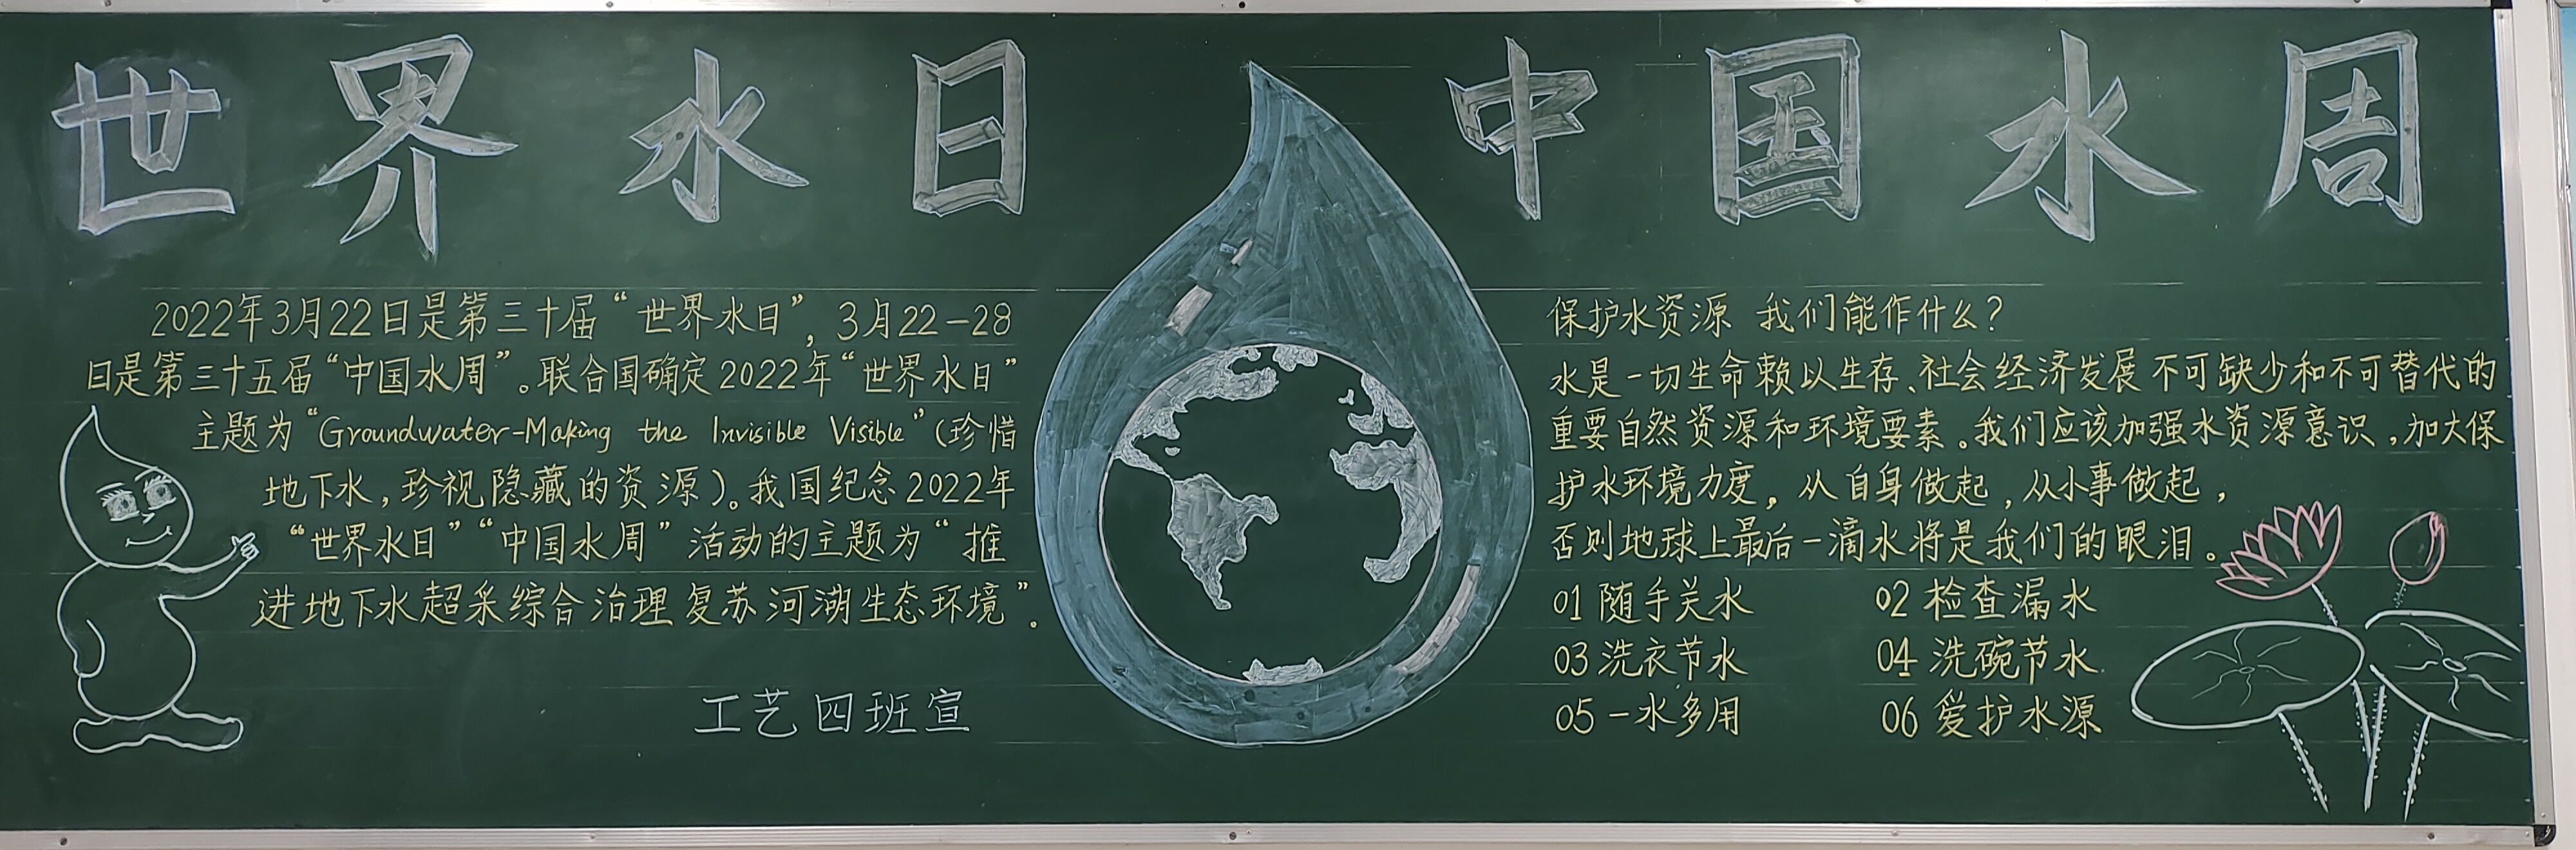 世界水日 中国水周
2022年3月22日是第三十届“世界水日”,3月22-28
日是第三十五届“中国水周”。联合国确定2022年“世界水日”
主题为“Groundwater-Making the Invisible Visible”(珍惜
地下水,珍视隐藏的资源)。我国纪念2022年
“世界水日”“中国水周”活动的主题为“推
进地下水超采综合治理 复苏河湖生态环境”.
工艺四班宣
保护水资源 我们能作什么?
水是一切生命赖以生存、社会经济发展不可缺少和不可替代的
重要自然资源和环境要素。我们应该加强水资源意识,加大保
护水环境力度,从自身做起,从小事做起,
否则地球上最后一滴水将是我们的眼泪。
01 随手关水 02 检查漏水
03 洗衣节水 04 洗碗节水
05 一水多用 06 爱护水源